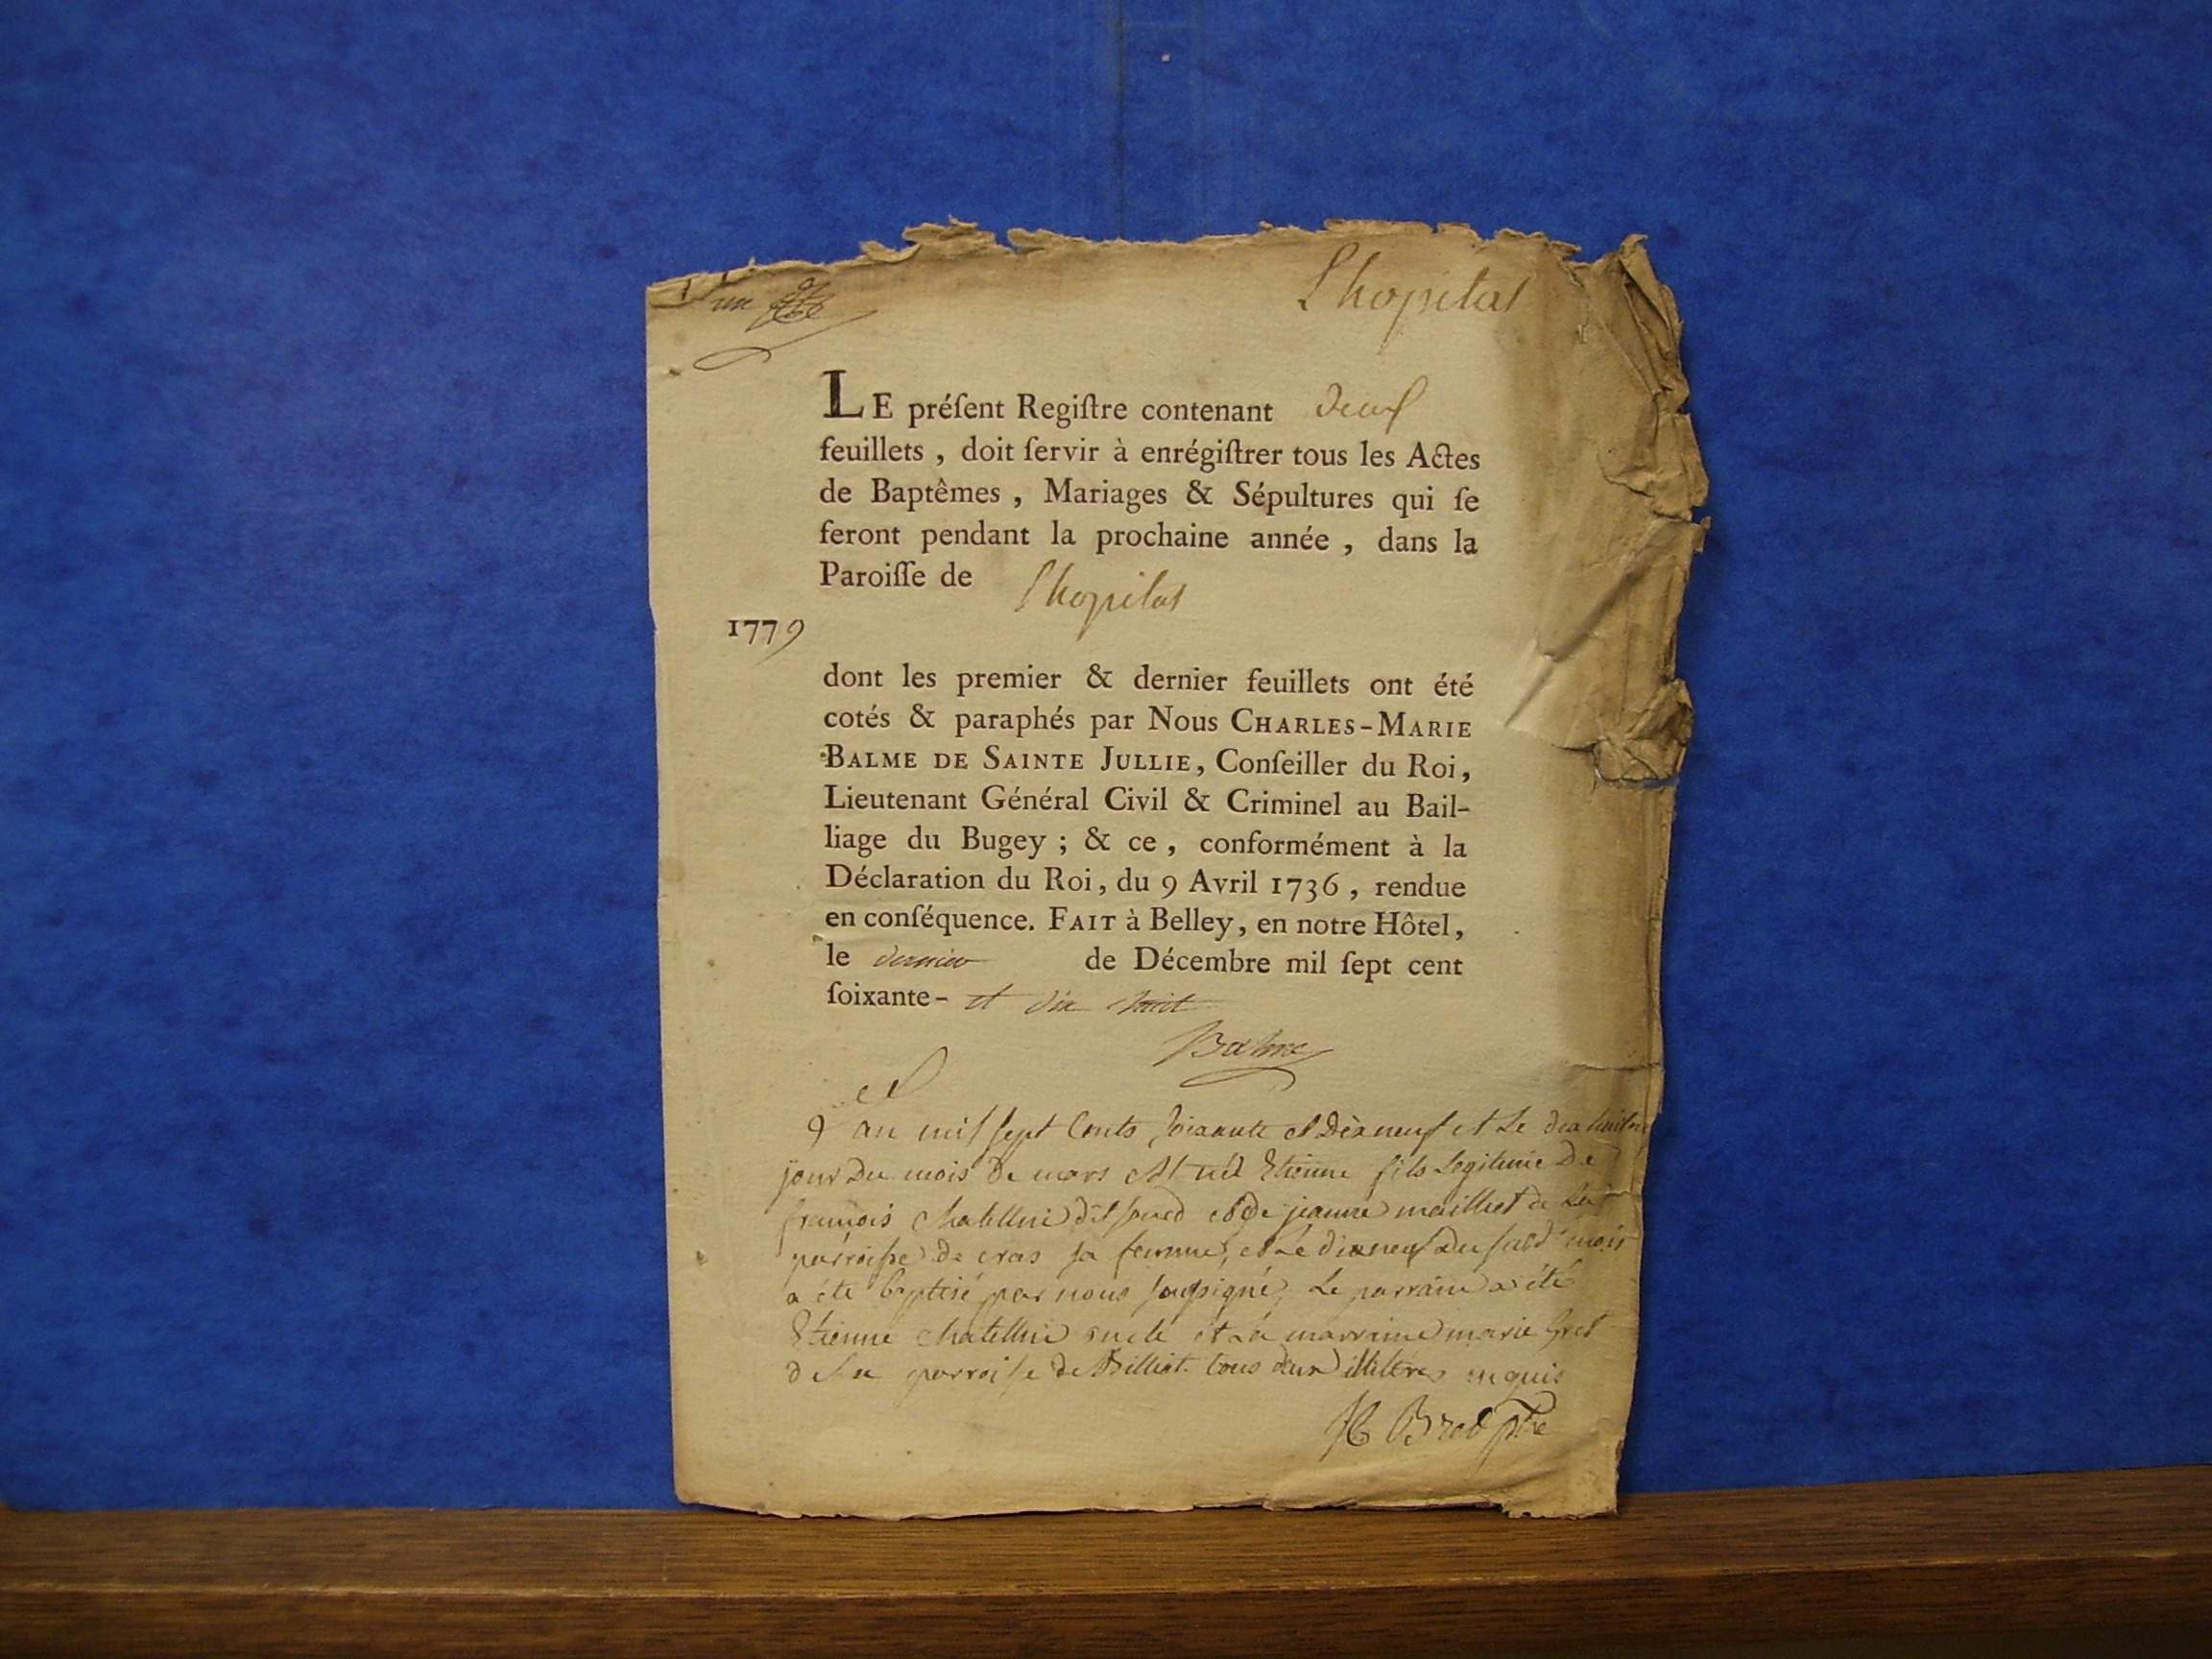 un
Lhopital
LE préſent Regiſtre contenant deux
feuillets, doit ſervir à enrégiſtrer tous les Actes
de Baptêmes, Mariages & Sépultures qui ſe
feront pendant la prochaine année, dans la
Paroiſſe de Lhopital
1779
dont les premier & dernier feuillets ont été
cotés & paraphés par Nous CHARLES-MARIE
BALME DE SAINTE JULLIE, Conſeiller du Roi,
Lieutenant Général Civil & Criminel au Bail-
liage du Bugey; & ce, conformément à la
Déclaration du Roi, du 9 Avril 1736, rendue
en conſéquence. FAIT à Belley, en notre Hôtel,
le dernier de Décembre mil ſept cent
ſoixante- et dix huit
Balme
an mil sept cents soixante et dixneuf et Le dix huit
jour du mois de mars est né Etienne fils Legitime De
francois chatellui dit et De jeanne maillet de La
parroisse de cras sa femme, et Le dixneuf Du mois
a été baptisé par nous soussigné, Le parrain a été
Etienne chatellui et La marraine marie
de La parroisse de Billiat tous deux illiteres enquis
Bred ptre